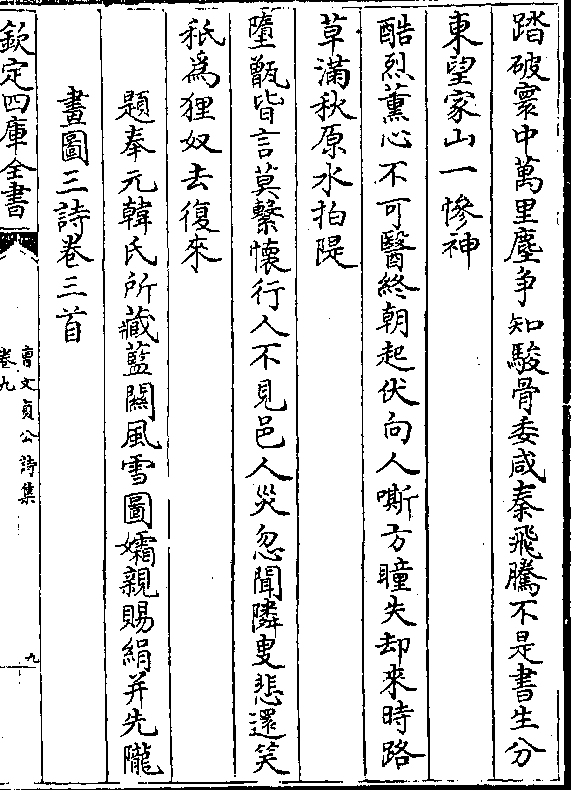 踏破寰中萬里塵争知駿骨委咸秦飛騰不是書生分
東望家山一慘神
酷烈薰心不可醫終朝起伏向人嘶方瞳失却來時路
草滿秋原水拍隄
墮甑皆言莫繫懷行人不見邑人災忽聞隣叟悲還笑
秖為狸奴去復來
題奉元韓氏所藏藍關風雪圖孀親賜絹并先隴
畫圖三詩卷三首
欽定四庫全書
曹文貞公詩集
卷九
九